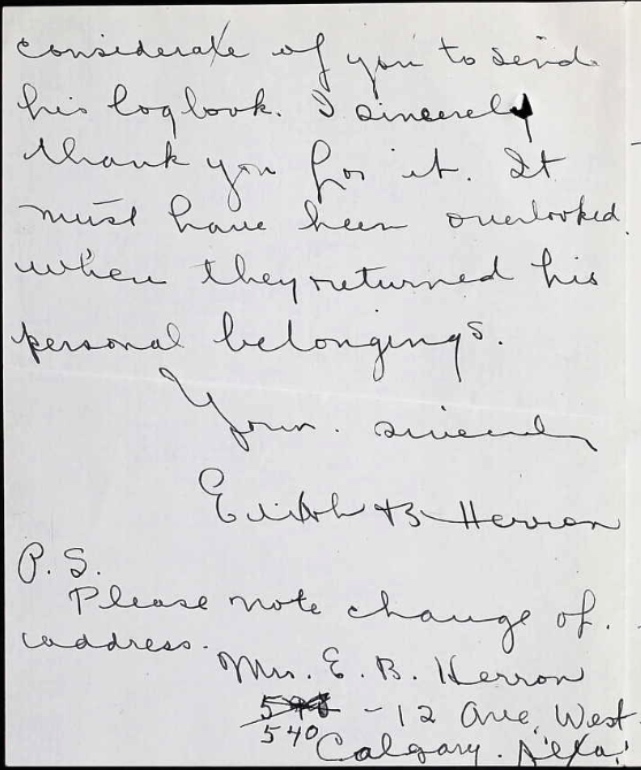 considerate of you to send
his log book. I sincerely
thank you for it. It
must have been overlooked
when they returned his
personal belongings.
Yours sincerely
Edith B Herron
P. S.
Please note change of
address.
Mrs. E. B. Herron
598 - 12 Ave. West
540
Calgary. Alta.